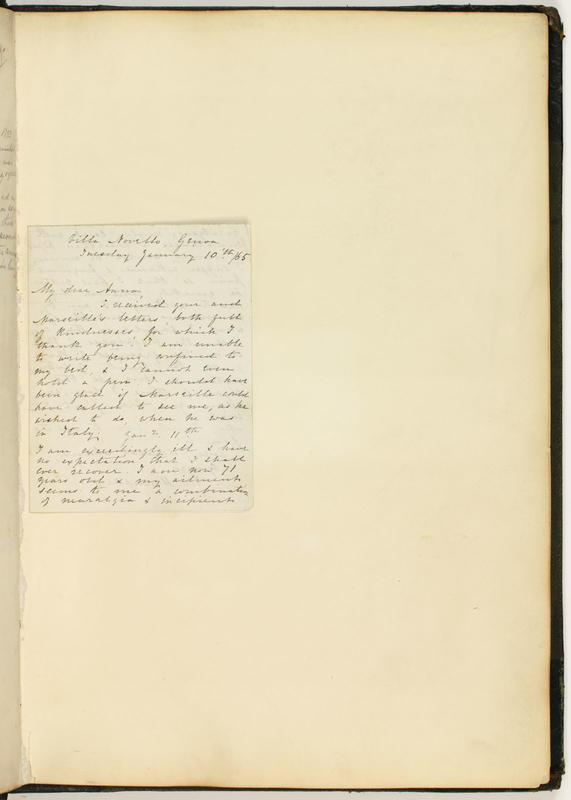 Villa Novello, Genoa
Tuesday January 10th/65
My dear Anna
I received your and
Marseille's letters both full
of Kindnesses for which I
thank you! I am unable
to write being confined to
my bed, & I cannot even
hold a pen. I should have
been glad if Marseille could
have called to see me, as he
wished to do, when he was
in Italy. Jany. 11th
I am exceedingly ill & have
no expectation that I shall
ever recover. I am now 71
years old & my ailments
seems to me a combination
of neuralgia & incipient